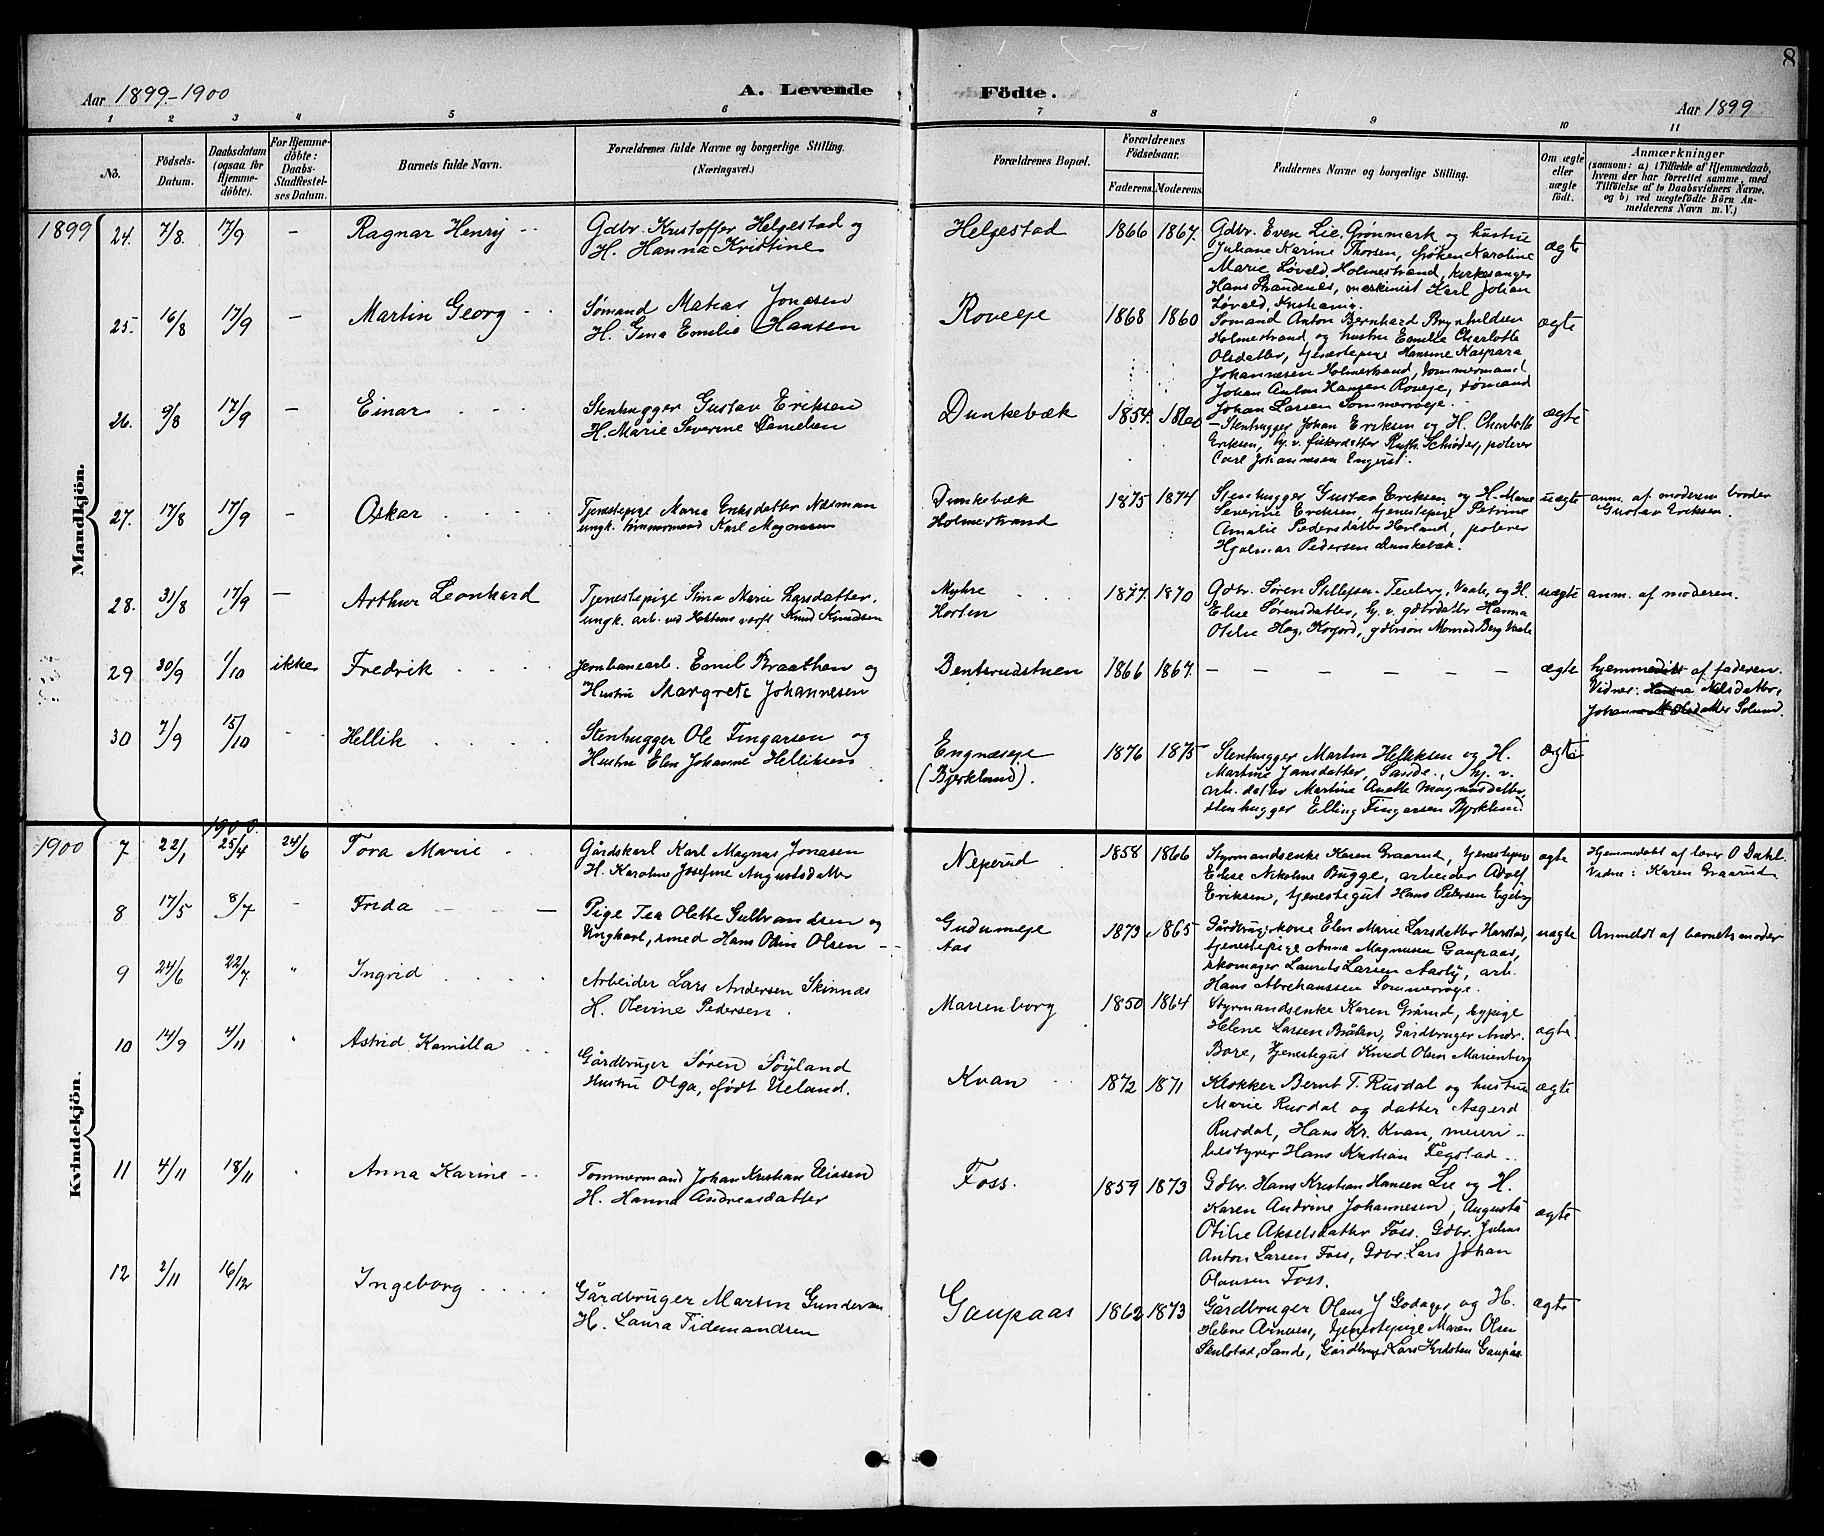 8
Aar 1899-1900
A. Levende
Födte.
Aar 1899
1 2 3 4 5 6 7 8 9 10 11
No.
Födsels-
Datum.
Daabsdatum
(ogsaa for
Hjemme-
döbte).
For Hjemme-
döbte:
Daabs-
Stadfæstel-
ses Datum.
Barnets fulde Navn.
Forældrenes fulde Navne og borgerlige Stilling.
(Næringsvei.)
Forældrenes Bopæl.
Forældrenes
Födselsaar.
Faderens.
Moderens.
Faddernes Navne og borgerlige Stilling.
Om ægte
eller
uægte
födt.
Anmærkninger
(saasom: a) i Tilfælde af Hjemmedaab,
hvem der har forrettet samme, med
Tilföielse af to Daabsvidners Navne.
og b) ved uægtefödte Börn An-
melderens Navn m. V.)
Mandkjön.
1899 24. 7/8. 17/9 – Ragnar Henry
Gdbr. Kristoffer Helgestad og
H. Hanna Kristine
Helgestad 1866 1867.
Gdbr. Even Lie, Grønmark og hustru
Juliane Karine Thorsen, frøken Karoline
Marie Løvald, Holmestrand, kirkesanger
Hans Strandenæs, maskinist Karl Johan
Løvald, Kristiania.
ægte
25. 16/8 17/9 – Martin Georg
Sømand Matias Jonasen
H. Gina Emilie Hansen
Roveje 1868 1860
Sømand Anton Bernhard Brynhildsen
Holmestrand, og hustru Emilie Charlotte
Olsdatter, tjenestepige Hansine Kaspara
Johannesen Holmestrand, tømmermand
Johan Anton Hansen Roveje, sømand
Johan Larsen Sommerroeje.
ægte
26. 9/8 17/9 – Einar
Stenhugger Gustav Eriksen
H. Marie Severine Danielsen
Dunkebæk 1854. 1860
– Stenhugger Johan Eriksen og H. Charlotte
Eriksen, hj. v. fiskerdatter Ruth Schrøder, polerer
Carl Johannesen Engvist.
ægte
27. 17/8 17/9 Oskar
Tjenestepige Maria Eriksdatter Näsman
ungk. tømmermand Karl Magnusen
Dunkebæk
Holmestrand
1875 1874
Stenhugger Gustav Eriksen og H. Marie
Severine Eriksen, tjenestepige Petrine
Amalie Pedersdatter Hovland, polerer
Hjalmar Pedersen Dunkebæk.
uægte
anm. af moderens broder
Gustav Eriksen.
28. 31/8 17/9 – Arthur Leonhard
Tjenestepige Stina Marie Larsdatter.
ungk. arb. ved Hortens verft Knud Knudsen
Myhre
Horten
1877. 1870
Gdbr. Søren Stillefsen Teieberg, Vaale, og H.
Elise Sørensdatter, hj. v. gdbrdatter Hanna
Otilie Hag, Kogjord, gdbrsøn Monrad Berg Vaale
uægte
anm. af moderen.
29 30/9 1/10 ikke Fredrik
Jernbanearb. Emil Braathen og
Hustru Margrete Johannesen
Bentsrudstuen 1866 1867. – – – – – – –
ægte
hjemmedøbt af faderen.
Vidner: Hanna Nilsdatter,
Johanne M Olsdatter Solund.
30 7/9 15/10 Hellik
Stenhugger Ole Fingarsen og
Hustru Elen Johanne Helliksen
Engnæseje
(Bjerklund).
1876 1875
Stenhugger Martin Helliksen og H.
Martine Jansdatter, Sande., hj. v.
arb. datter Martine Anette Magnusdatter,
stenhugger Elling Fingarsen Bjerklund
ægte
Kvindekjön.
1900 1900.
7 22/1 25/4 24/6 Tora Marie
Gårdskarl Karl Magnus Jonasen
H. Karoline Josefine Augustsdatter
Neperud 1858 1866
Styrmandsenke Karen Graarud, tjenestepige
Elise Nikoline Bugge, arbeider Adolf
Eriksen, tjenestegut Hans Petersen Egeberg
ægte
Hjemmedøbt af lærer O Dahl.
Vidne: Karen Graarud
8 17/5 8/7 - Frida
Pige Tea Olette Gulbrandsen og
Ungkarl, smed Hans Odin Olsen
Gudumeje
Aas
1873 1865
Gårdbrugerkone Elen Marie Larsdatter Harstad,
tjenestepige Anna Magnusen Gaupaas,
skomager Laurits Larsen Aasby, arb.
Hans Abrahamsen Sommerroeje.
uægte
Anmeldt af barnets moder
9 24/6 22/7 " Ingrid
Arbeider Lars Andersen Skinnæs
H. Olevine Pedersen.
Marienborg 1850 1864
Styrmandsenke Karen Grårud, hypige
Helene Larsen Bråtan, Gårdbruger Andr.
Bore, tjenestegut Knud Olsen Marienborg
ægte.
10 14/9 4/11 " Astrid Kamilla
Gårdbruger Søren Søyland
Hustru Olga, født Ueland.
Kvan 1872 1871
Klokker Bernt T. Rusdal og hustru
Marie Rusdal og datter Asgerd
Rusdal, Hans Kr. Kvan, meieri-
bestyrer Hans Kristian Tegstad.
ægte
11 4/11 18/11 " Anna Karine
Tømmermand Johan Kristian Eliasen
H. Hanna Andreasdatter
Foss. 1859 1873
Gdbr. Hans Kristian Hansen Lie og H.
Karen Andrine Johannesen, Augusta
Otilie Akselsdatter Foss. Gdbr. Julius
Anton Larsen Foss, Gdbr. Lars Johan
Olausen Foss.
ægte
12 2/11 16/12 Ingeborg
Gårdbruger Martin Gundersen
H. Laura Tidemandsen
Gaupaas 1862 1873
Gårdbruger Olaus J Godager og H.
Helene Arnesen, tjenestepige Maren Olsen
Skulstad, Sande, Gårdbruger Lars Kristian Gaupås
ægte